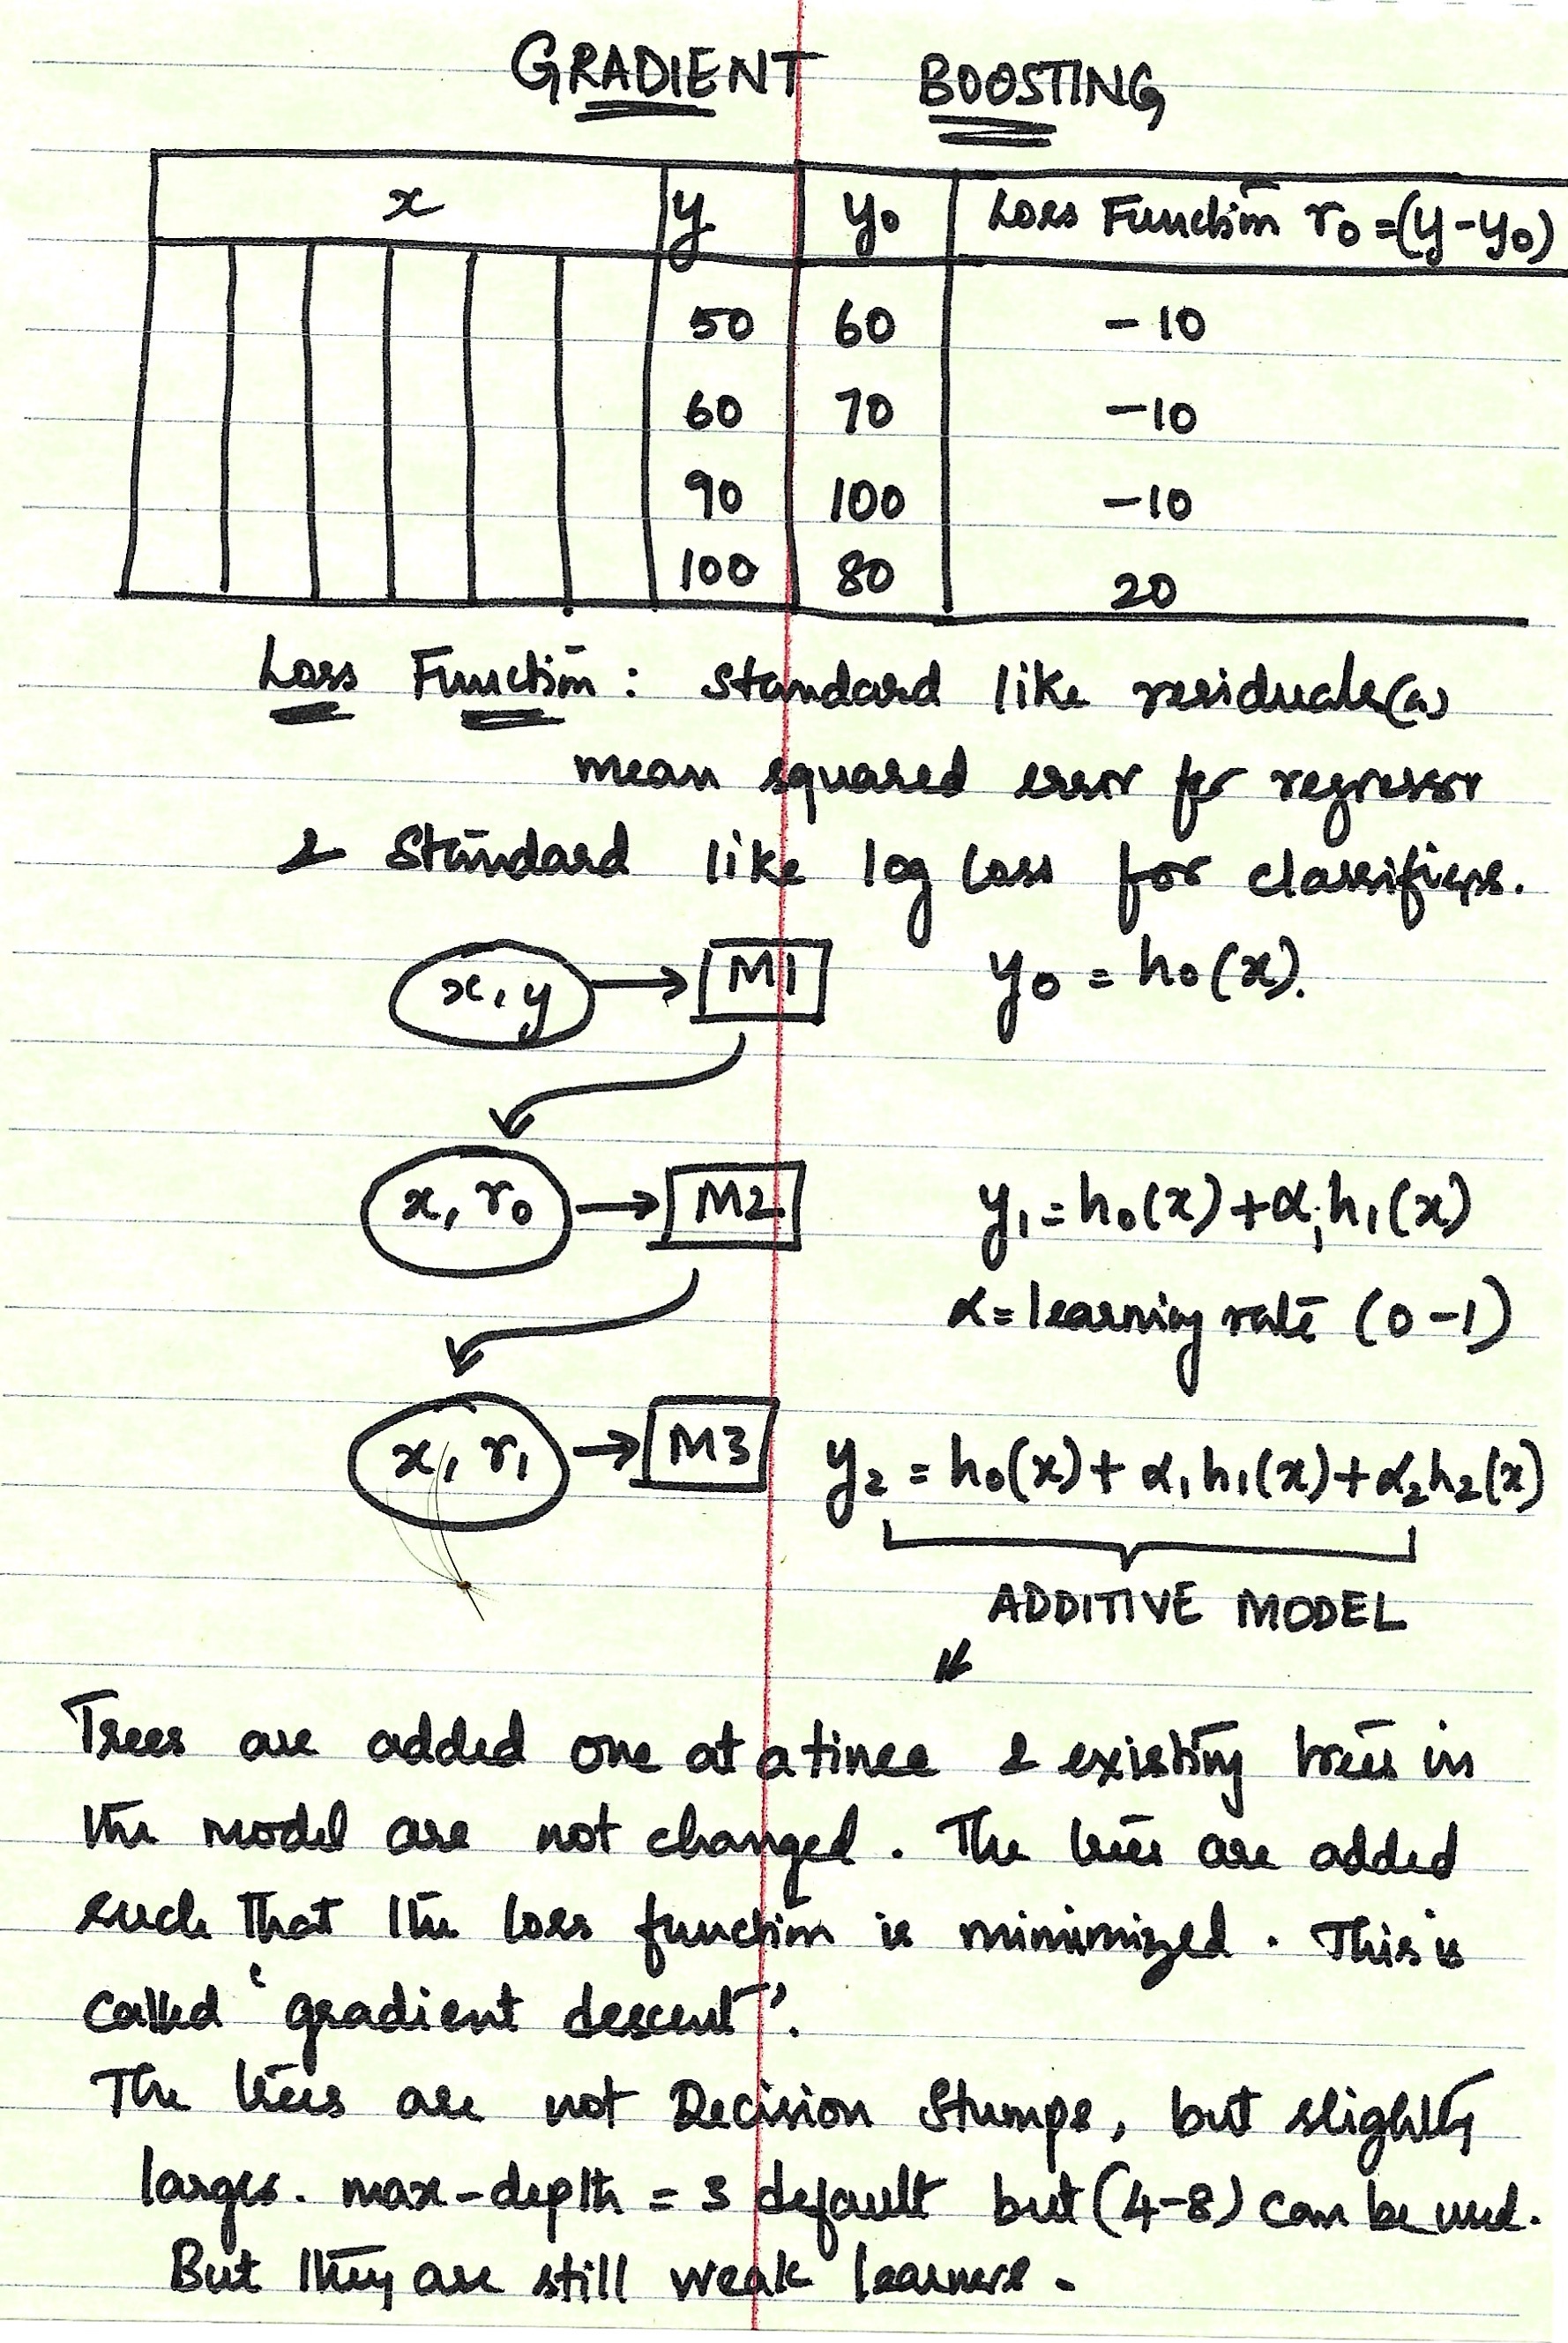 GRADIENT BOOSTING
x y y₀ Loss Function r₀=(y-y₀)
50 60 -10
60 70 -10
90 100 -10
100 80 20
Loss Function: Standard like residuals(or)
mean squared error for regressor
& Standard like log loss for classifiers.
x,y → M1 y₀ = h₀(x).
x, r₀ → M2 y₁=h₀(x)+α₁h₁(x)
α=learning rate (0-1)
x, r₁ → M3 y₂ = h₀(x)+α₁h₁(x)+α₂h₂(x)
ADDITIVE MODEL
Trees are added one at a time & existing trees in
the model are not changed. The trees are added
such that the loss function is minimized. This is
called 'gradient descent'.
The trees are not Decision Stumps, but slightly
larger. max-depth = 3 default but (4-8) can be used.
But they are still weak learners.